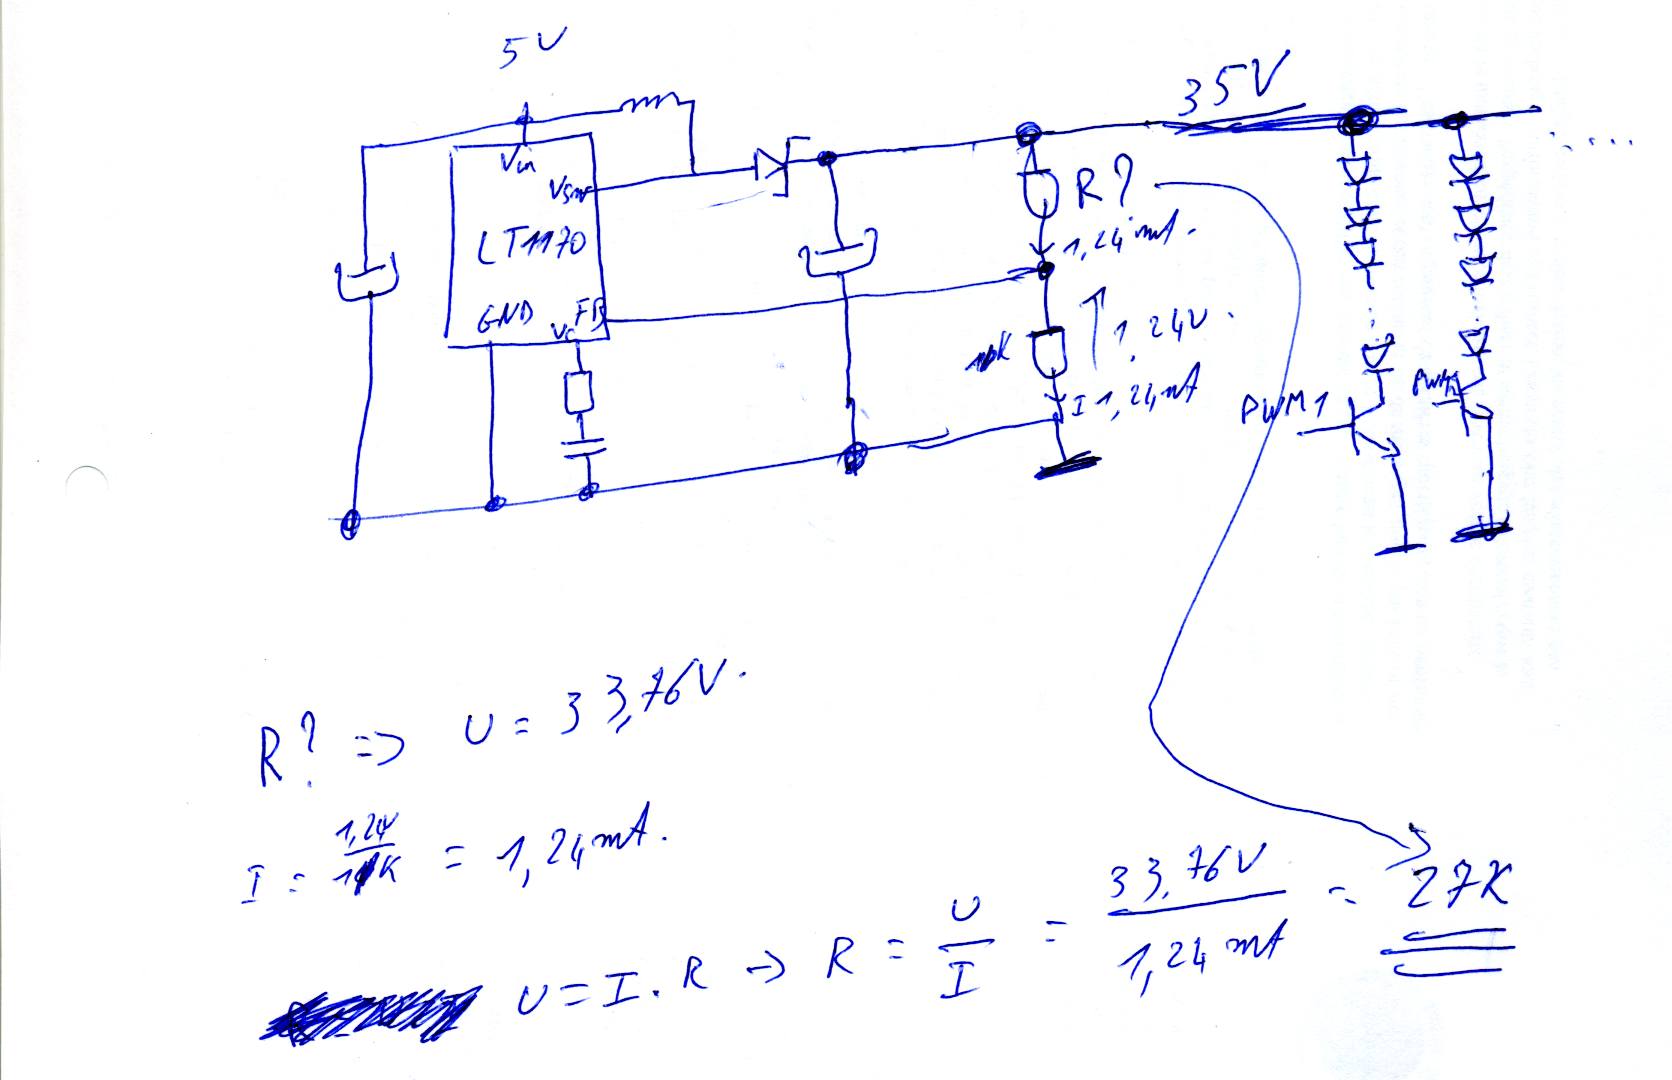 5V
35V
Vin
Vsw
LT1170
GND
Vc
FB
R?
1,24 mA.
1K
1.24V.
I 1,24mA
PWM1
R? => U = 33,76V.
I = 1,24V / 1K = 1,24 mA.
U = I . R -> R = U / I = 33,76V / 1,24 mA = 27K